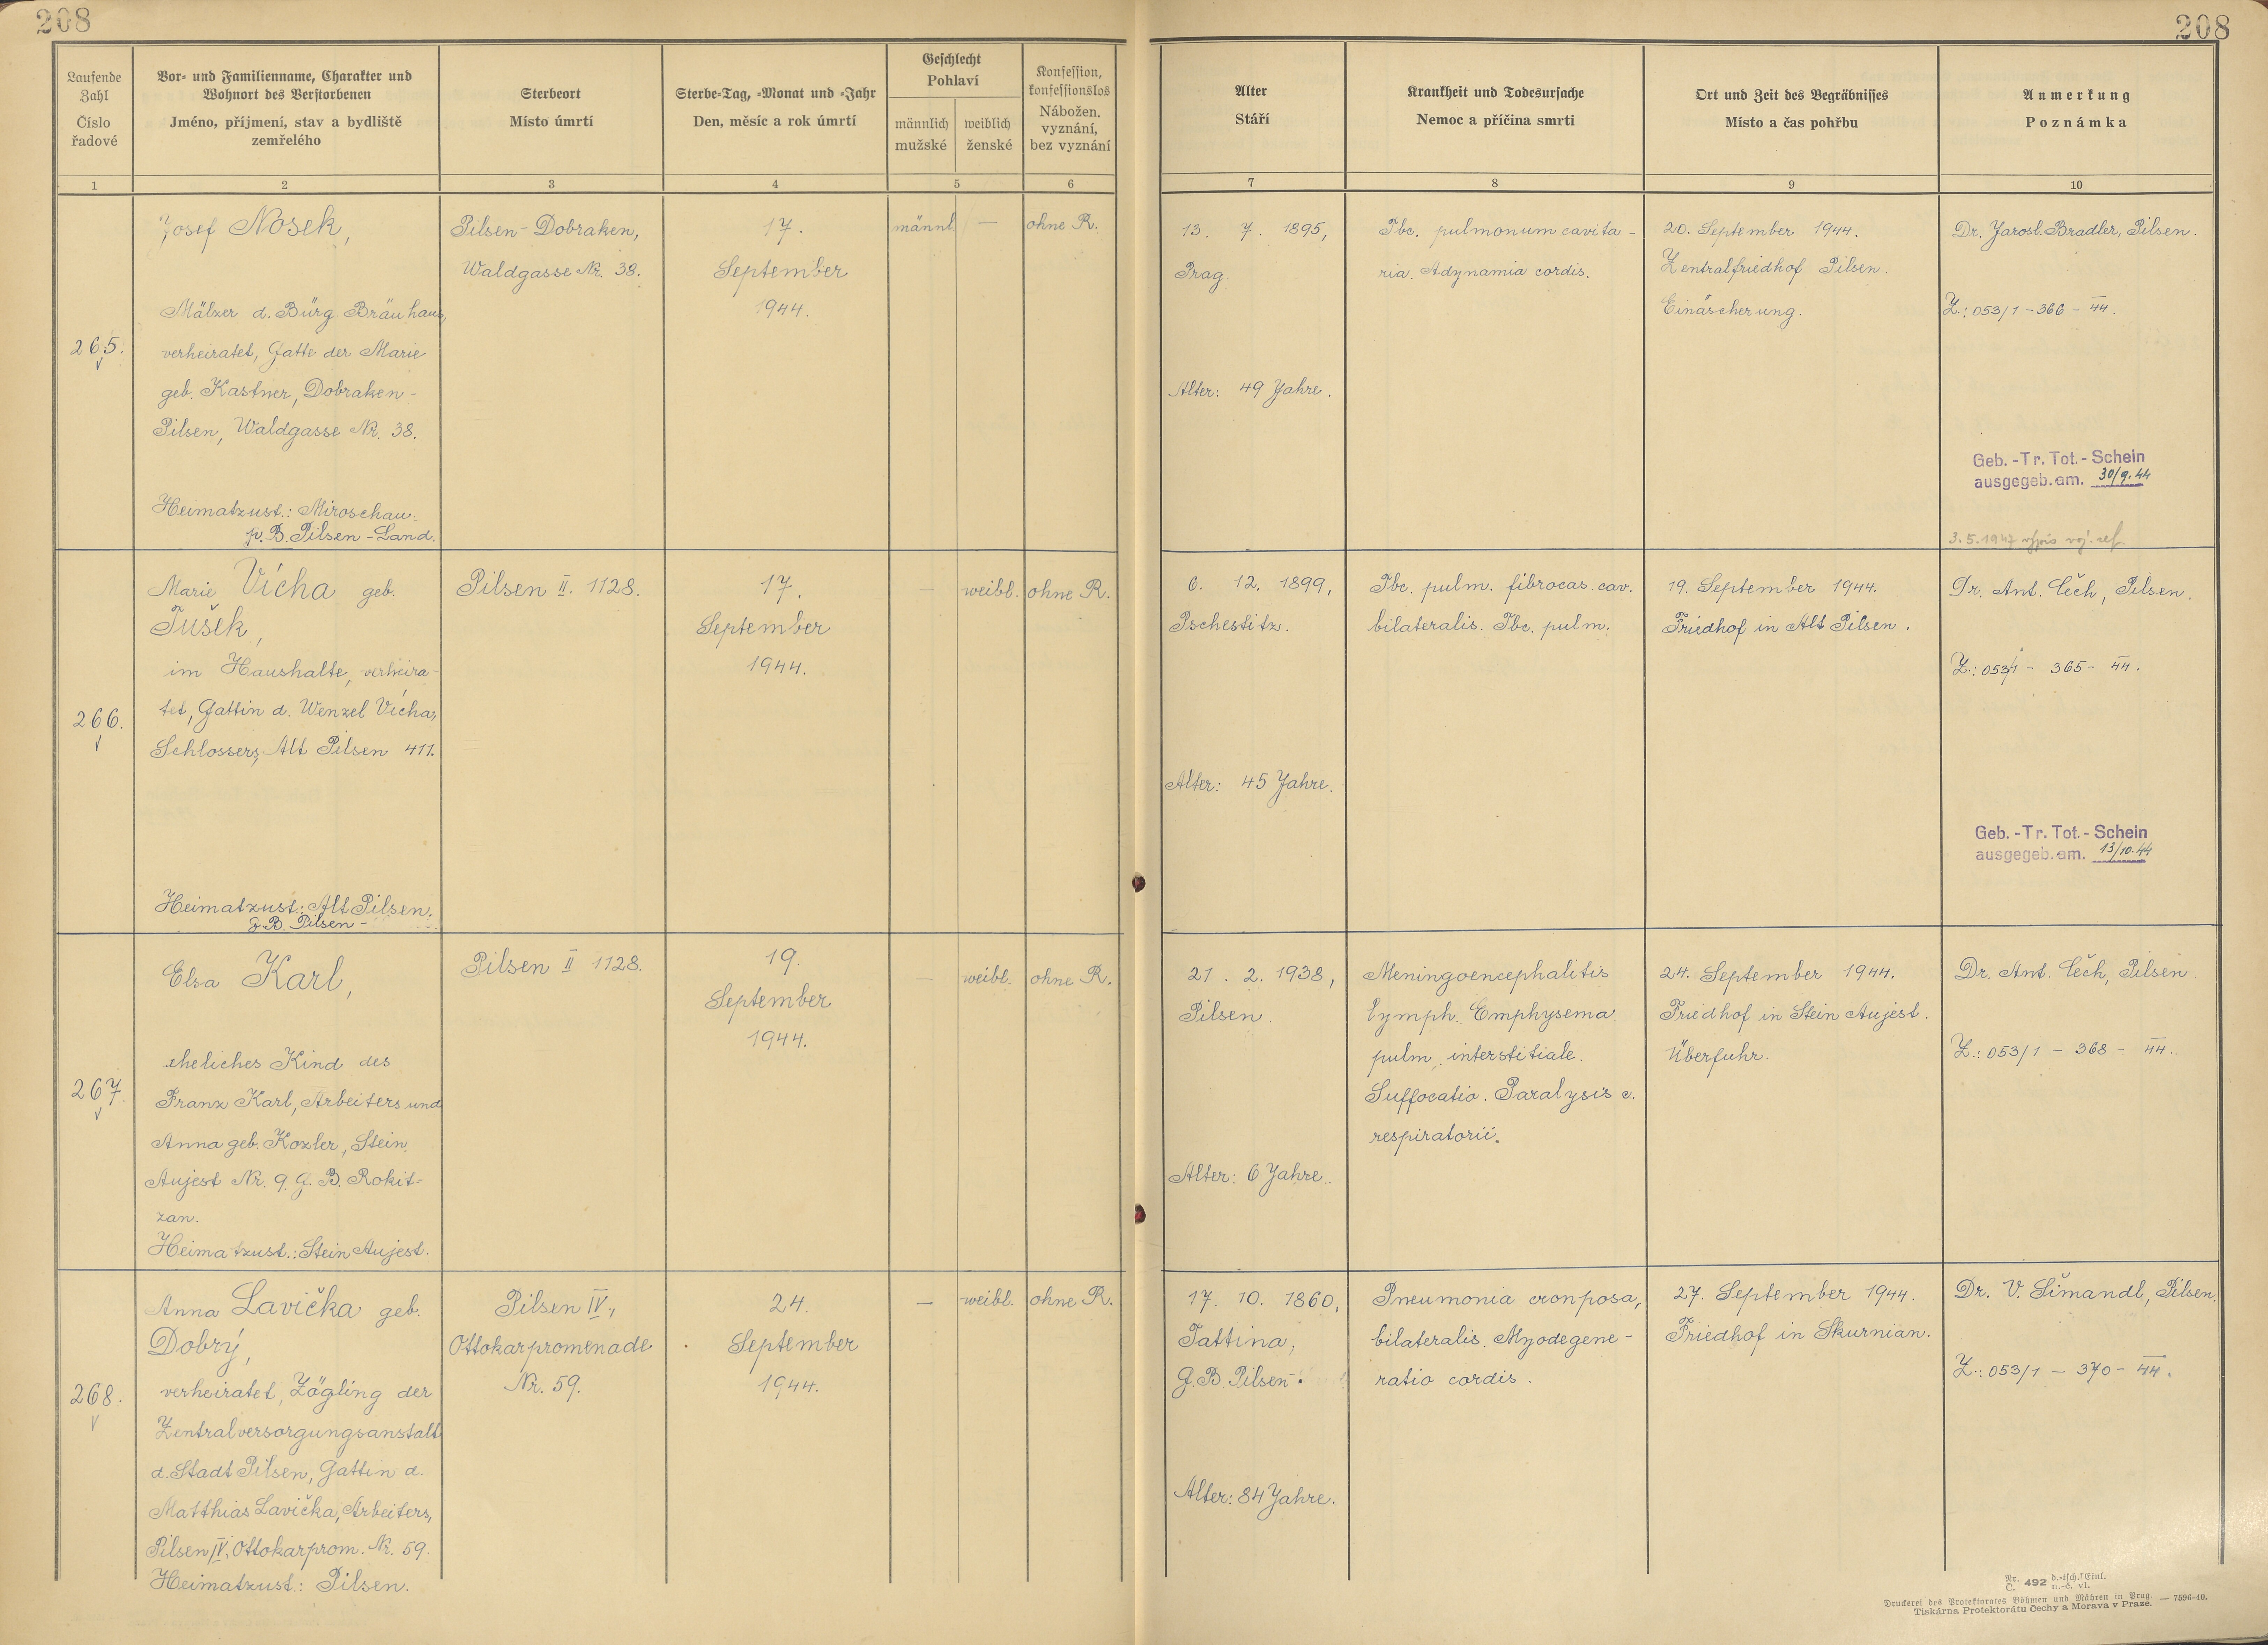 208
208
Laufende
Zahl
Číslo
řadové
Vor- und Familienname, Charakter und
Wohnort des Verstorbenen
Jméno, příjmení, stav a bydliště
zemřelého
Sterbeort
Místo úmrtí
Sterbe-Tag, -Monat und -Jahr
Den, měsíc a rok úmrtí
Geschlecht
Pohlaví
männlich
mužské
weiblich
ženské
Konfession,
konfessionslos
Nábožen.
vyznání,
bez vyznání
Alter
Stáří
Krankheit und Todesursache
Nemoc a příčina smrti
Ort und Zeit des Begräbnisses
Místo a čas pohřbu
Anmerkung
Poznámka
1
2
3
4
5
6
7
8
9
10
265.
Josef Nosek,
Mälzer d. Bürg Bräuhaus,
verheiratet, Gatte der Marie
geb. Kastner, Dobraken-
Pilsen, Waldgasse Nr. 38.
Heimatzust.: Miroschau.
p. B. Pilsen-Land.
Pilsen-Dobraken,
Waldgasse Nr. 38.
17.
September
1944.
männl.
—
ohne R.
13. 7. 1895,
Prag.
Alter: 49 Jahre.
Tbc. pulmonum cavita-
ria. Adynamia cordis.
20. September 1944.
Zentralfriedhof Pilsen.
Einäscherung.
Dr. Jarosl. Bradler, Pilsen.
Z.: 053/1 - 366 - 44.
Geb.-Tr. Tot.-Schein
ausgegeb. am. 30/9.44
3.5.1947 výpis voj. ref.
266.
Marie Vícha geb.
Tušek,
im Haushalte, verheira-
tet, Gattin d. Wenzel Vícha,
Schlossers, Alt Pilsen 411.
Heimatzust.: Alt Pilsen.
G. B. Pilsen-
Pilsen II. 1128.
17.
September
1944.
—
weibl.
ohne R.
6. 12. 1899,
Pschestitz.
Alter: 45 Jahre.
Tbc. pulm. fibrocas. cav.
bilateralis. Tbc. pulm.
19. September 1944.
Friedhof in Alt Pilsen.
Dr. Ant. Čech, Pilsen.
Z.: 053/1 - 365 - 44.
Geb.-Tr. Tot.-Schein
ausgegeb. am. 13/10.44
267.
Elsa Karl,
eheliches Kind des
Franz Karl, Arbeiters und
Anna geb. Kozler, Stein
Aujest Nr. 9. G. B. Rokit-
zan.
Heimatzust.: Stein Aujest.
Pilsen II 1128.
19.
September
1944.
—
weibl.
ohne R.
21. 2. 1938,
Pilsen.
Alter: 6 Jahre.
Meningoencephalitis
lymph. Emphysema
pulm. interstitiale.
Suffocatio. Paralysis c.
respiratorii.
24. September 1944.
Friedhof in Stein Aujest.
Überfuhr.
Dr. Ant. Čech, Pilsen.
Z.: 053/1 - 368 - 44.
268.
Anna Lavička geb.
Dobrý,
verheiratet, Zögling der
Zentralversorgungsanstalt
d. Stadt Pilsen, Gattin d.
Matthias Lavička, Arbeiters,
Pilsen IV, Ottokarprom. Nr. 59.
Heimatzust.: Pilsen.
Pilsen IV.,
Ottokarpromenade
Nr. 59.
24.
September
1944.
—
weibl.
ohne R.
17. 10. 1860,
Tattina,
G. B. Pilsen.
Alter: 84 Jahre.
Pneumonia cronposa,
bilateralis. Myodegene-
ratio cordis.
27. September 1944.
Friedhof in Skurnian.
Dr. V. Šimandl, Pilsen.
Z.: 053/1 - 370 - 44.
Nr. 492 d.-tsch. Einl.
Č. n.-č. vl.
Druckerei des Protektorates Böhmen und Mähren in Prag. — 7596-40.
Tiskárna Protektorátu Čechy a Morava v Praze.